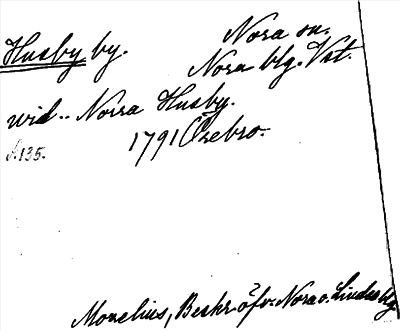 Husby by.
Nora sn.
Nora blg. Vst.
vid.. Norra Husby.
s.135.
1791 Örebro.
Morelius, Beskr. öfv. Nora o. Lindes blg